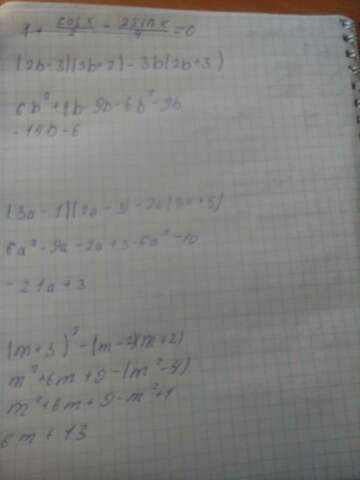 1 + cos x/2 - 2 sin x/4 = 0
(2b-3)(3b+2)-3b(2b+3)
6b²+4b-9b-6b²-9b
-14b-6
(3a-1)(2a-3)-2a(3a+5)
6a²-9a-2a+3-6a²-10
-21a+3
(m+3)²-(m-2)(m+2)
m²+6m+9-(m²-4)
m²+6m+9-m²+4
6m+13